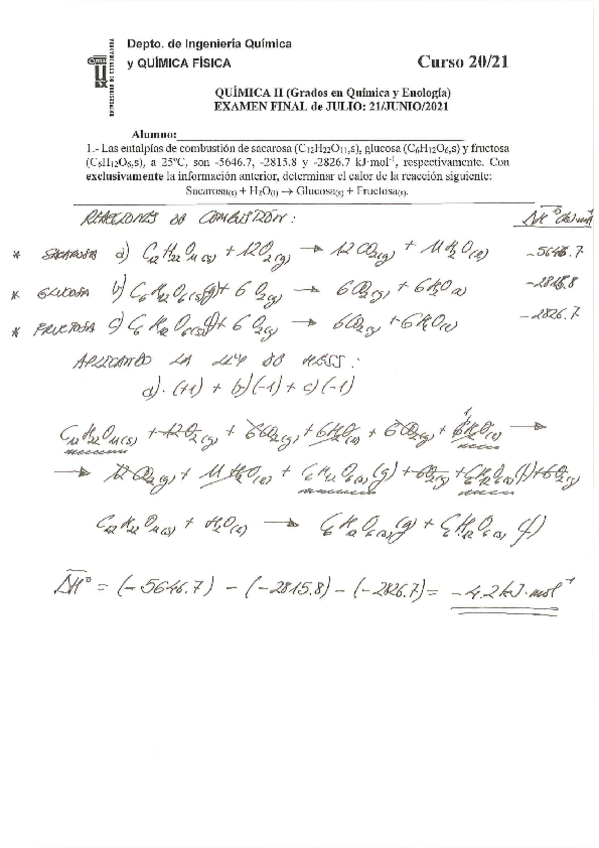 Depto. de Ingeniería Química
y QUÍMICA FÍSICA
Curso 20/21
QUÍMICA II (Grados en Química y Enología)
EXAMEN FINAL de JULIO: 21/JUNIO/2021
Alumno:
1.- Las entalpías de combustión de sacarosa (C12H22O11,s), glucosa (C6H12O6,s) y fructosa
(C6H12O6,s), a 25ºC, son -5646.7, -2815.8 y -2826.7 kJ·mol-1, respectivamente. Con
exclusivamente la información anterior, determinar el calor de la reacción siguiente:
Sacarosa(s) + H2O(l) → Glucosa(s) + Fructosa(s).
REACCIONES DE COMBUSTIÓN:
* SACAROSA a) C12H22O11(s) + 12O2(g) → 12CO2(g) + 11H2O(l) -5646.7
* GLUCOSA b) C6H12O6(s)(g) + 6O2(g) → 6CO2(g) + 6H2O(l) -2815.8
* FRUCTOSA c) C6H12O6(s)(f) + 6O2(g) → 6CO2(g) + 6H2O(l) -2826.7
APLICANDO LA LEY DE HESS:
a)·(+1) + b)(-1) + c)(-1)
C12H22O11(s) + 12O2(g) + 6CO2(g) + 6H2O(l) + 6CO2(g) + 6H2O(l) →
→ 12CO2(g) + 11H2O(l) + C6H12O6(s)(g) + 6O2(g) + C6H12O6(s)(f) + 6O2(g)
C12H22O11(s) + H2O(l) → C6H12O6(s)(g) + C6H12O6(s)(f)
ΔH° = (-5646.7) - (-2815.8) - (-2826.7) = -4.2 kJ·mol-1